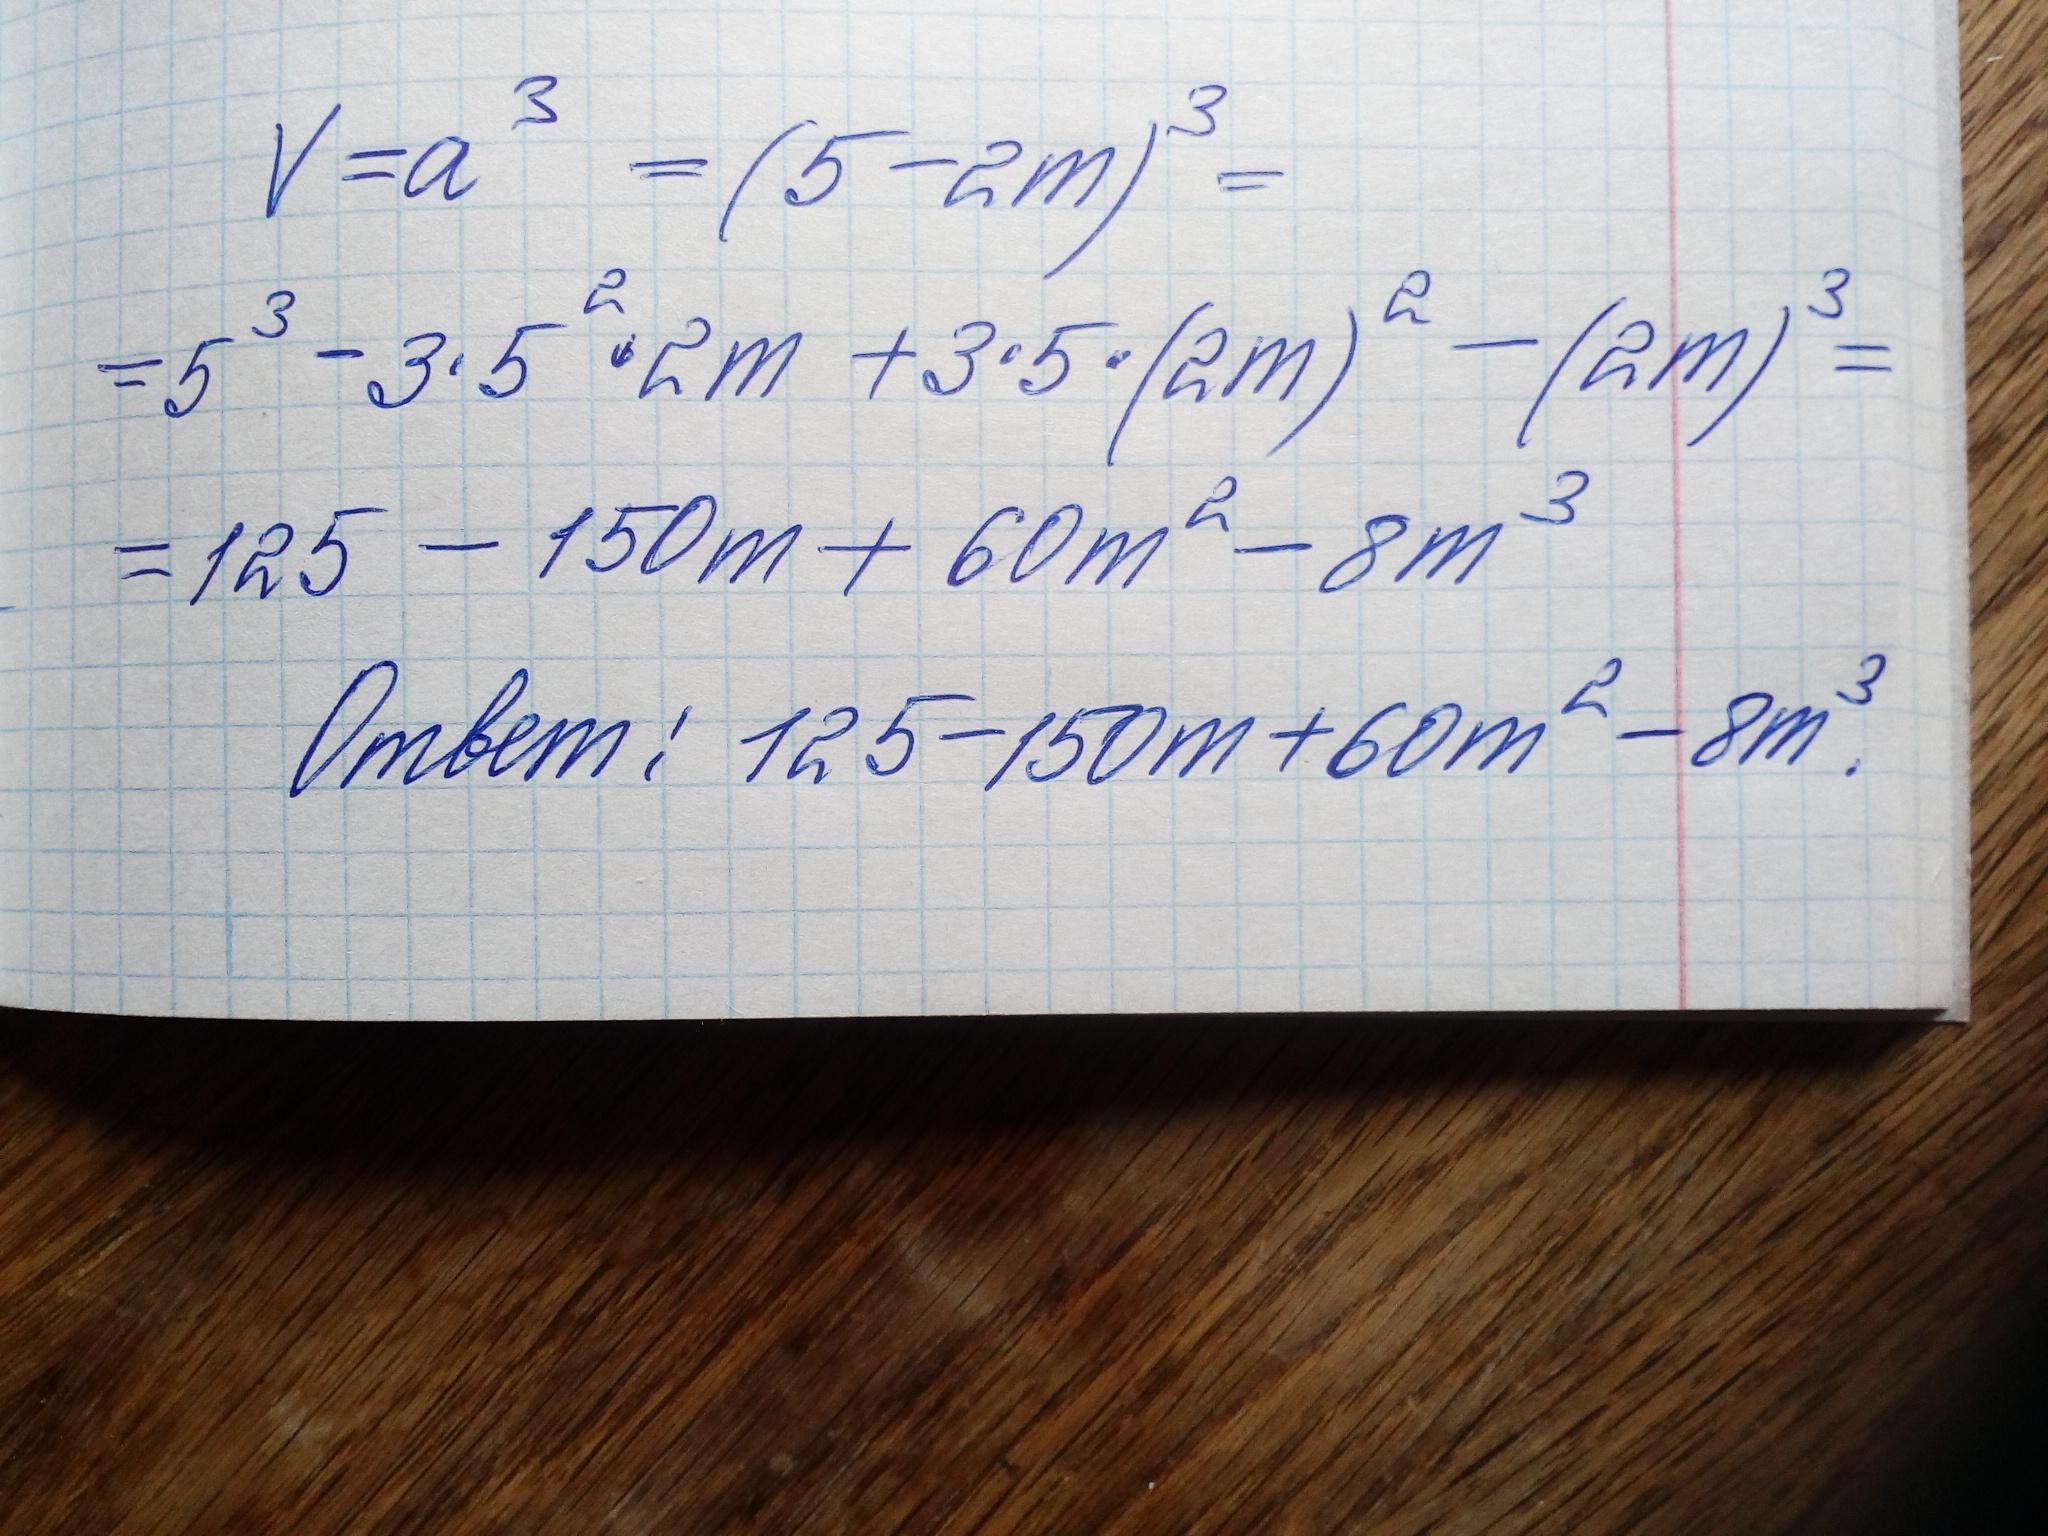 V = a³ = (5 - 2m)³ =
= 5³ - 3·5²·2m + 3·5·(2m)² - (2m)³ =
= 125 - 150m + 60m² - 8m³
Ответ: 125 - 150m + 60m² - 8m³.